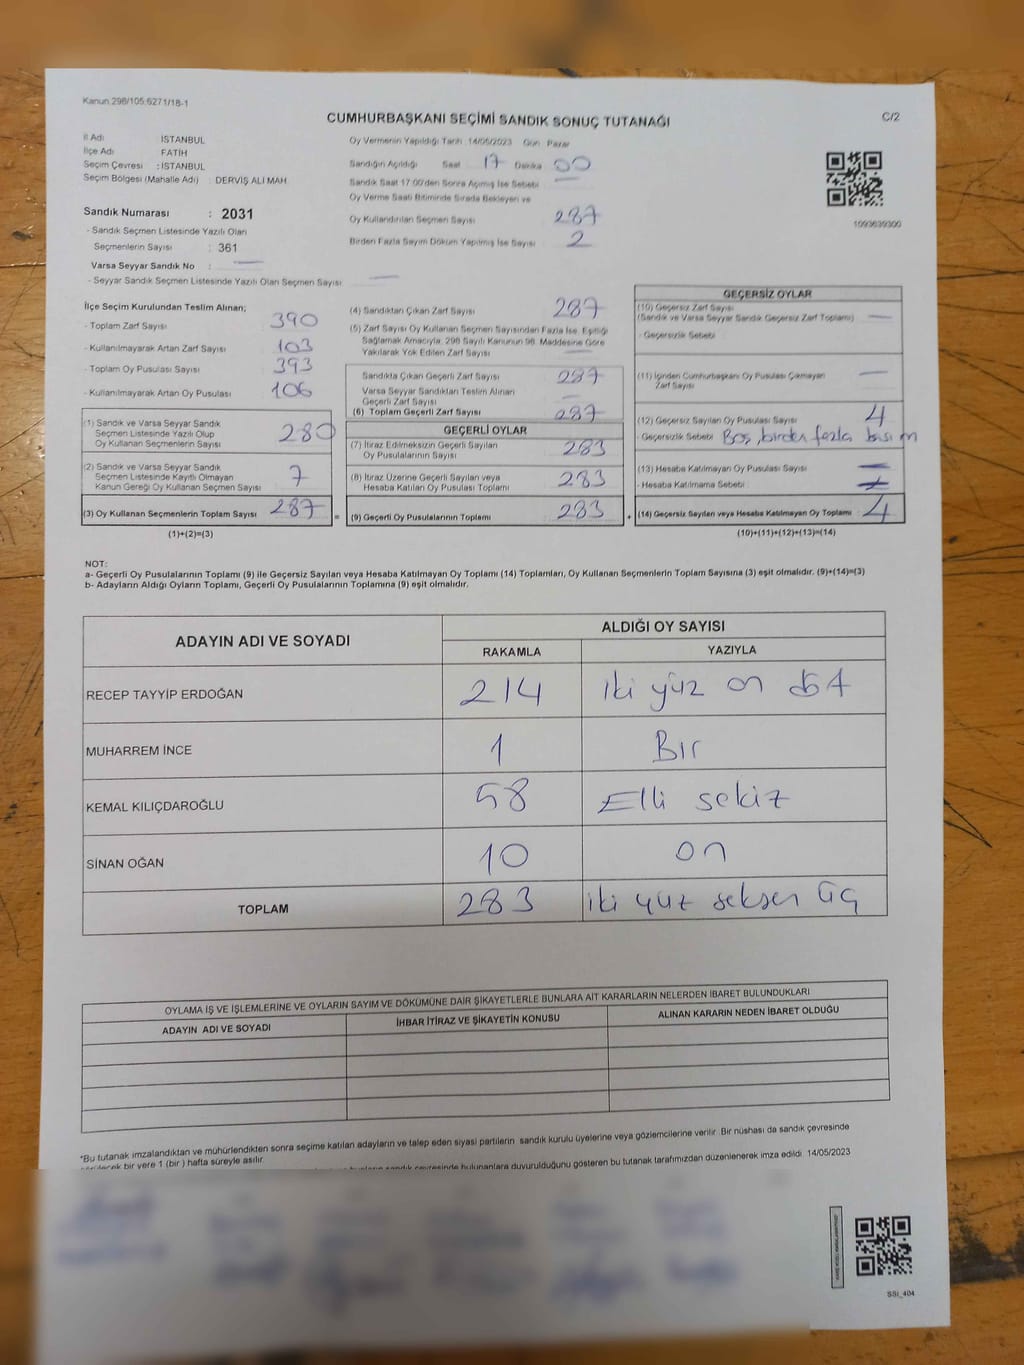 Kanun 298/105.6271/18-1
CUMHURBAŞKANI SEÇİMİ SANDIK SONUÇ TUTANAĞI
C/2
İl Adı İSTANBUL
İlçe Adı FATİH
Seçim Çevresi : İSTANBUL
Seçim Bölgesi (Mahalle Adı) : DERVİŞ ALİ MAH
Sandık Numarası : 2031
- Sandık Seçmen Listesinde Yazılı Olan
Seçmenlerin Sayısı : 361
Varsa Seyyar Sandık No : —
- Seyyar Sandık Seçmen Listesinde Yazılı Olan Seçmen Sayısı —
Oy Vermenin Yapıldığı Tarih :14/05/2023 Gün Pazar
Sandığın Açıldığı Saat 17 Dakika 00
Sandık Saat 17.00'den Sonra Açılmış İse Sebebi —
Oy Verme Saati Bitiminde Sırada Bekleyen ve
Oy Kullandırılan Seçmen Sayısı 287
Birden Fazla Sayım Döküm Yapılmış İse Sayısı 2
1093639300
İlçe Seçim Kurulundan Teslim Alınan;
- Toplam Zarf Sayısı 390
- Kullanılmayarak Artan Zarf Sayısı 103
- Toplam Oy Pusulası Sayısı 393
- Kullanılmayarak Artan Oy Pusulası 106
(1) Sandık ve Varsa Seyyar Sandık
Seçmen Listesinde Yazılı Olup
Oy Kullanan Seçmenlerin Sayısı 280
(2) Sandık ve Varsa Seyyar Sandık
Seçmen Listesinde Kayıtlı Olmayan
Kanun Gereği Oy Kullanan Seçmen Sayısı 7
(3) Oy Kullanan Seçmenlerin Toplam Sayısı 287 =
(1)+(2)=(3)
(4) Sandıktan Çıkan Zarf Sayısı 287
(5) Zarf Sayısı Oy Kullanan Seçmen Sayısından Fazla İse, Eşitliği
Sağlamak Amacıyla, 298 Sayılı Kanunun 98. Maddesine Göre
Yakılarak Yok Edilen Zarf Sayısı —
Sandıkta Çıkan Geçerli Zarf Sayısı 287
Varsa Seyyar Sandıktan Teslim Alınan
Geçerli Zarf Sayısı —
(6) Toplam Geçerli Zarf Sayısı 287
GEÇERLİ OYLAR
(7) İtiraz Edilmeksizin Geçerli Sayılan
Oy Pusulalarının Sayısı 283
(8) İtiraz Üzerine Geçerli Sayılan veya
Hesaba Katılan Oy Pusulası Toplamı 283
(9) Geçerli Oy Pusulalarının Toplamı 283 +
GEÇERSİZ OYLAR
(10) Geçersiz Zarf Sayısı
(Sandık ve Varsa Seyyar Sandık Geçersiz Zarf Toplamı) —
- Geçersizlik Sebebi
(11) İçinden Cumhurbaşkanı Oy Pusulası Çıkmayan
Zarf Sayısı —
(12) Geçersiz Sayılan Oy Pusulası Sayısı 4
- Geçersizlik Sebebi Boş, birden fazla basım
(13) Hesaba Katılmayan Oy Pusulası Sayısı —
- Hesaba Katılmama Sebebi
(14) Geçersiz Sayılan veya Hesaba Katılmayan Oy Toplamı 4
(10)+(11)+(12)+(13)=(14)
NOT:
a- Geçerli Oy Pusulalarının Toplamı (9) ile Geçersiz Sayılan veya Hesaba Katılmayan Oy Toplamı (14) Toplamları, Oy Kullanan Seçmenlerin Toplam Sayısına (3) eşit olmalıdır. (9)+(14)=(3)
b- Adayların Aldığı Oyların Toplamı, Geçerli Oy Pusulalarının Toplamına (9) eşit olmalıdır.
ADAYIN ADI VE SOYADI ALDIĞI OY SAYISI
RAKAMLA YAZIYLA
RECEP TAYYİP ERDOĞAN 214 iki yüz on
MUHARREM İNCE 1 Bir
KEMAL KILIÇDAROĞLU 58 Elli sekiz
SİNAN OĞAN 10 on
TOPLAM 283 iki yüz seksen üç
OYLAMA İŞ VE İŞLEMLERİNE VE OYLARIN SAYIM VE DÖKÜMÜNE DAİR ŞİKAYETLERLE BUNLARA AİT KARARLARIN NELERDEN İBARET BULUNDUKLARI
ADAYIN ADI VE SOYADI İHBAR İTİRAZ VE ŞİKAYETİN KONUSU ALINAN KARARIN NEDEN İBARET OLDUĞU
*Bu tutanak imzalandıktan ve mühürlendikten sonra seçime katılan adayların ve talep eden siyasi partilerin sandık kurulu üyelerine veya gözlemcilerine verilir. Bir nüshası da sandık çevresinde
bir yere 1 (bir) hafta süreyle asılır.
sandık çevresinde bulunanlara duyurulduğunu gösteren bu tutanak tarafımızdan düzenlenerek imza edildi. 14/05/2023
SSI_404